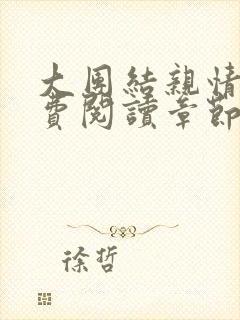 大団結親情
費閱讀章節
徐哲